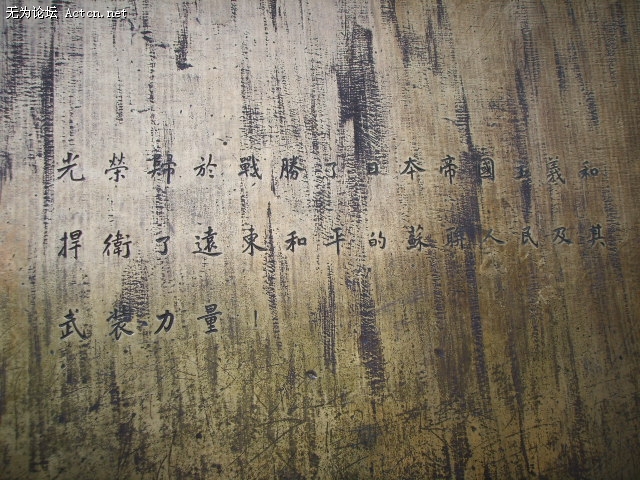 无为论坛 Actcn.net
光榮歸於戰勝了日本帝國主義和
捍衛了遠東和平的蘇聯人民及其
武装力量！